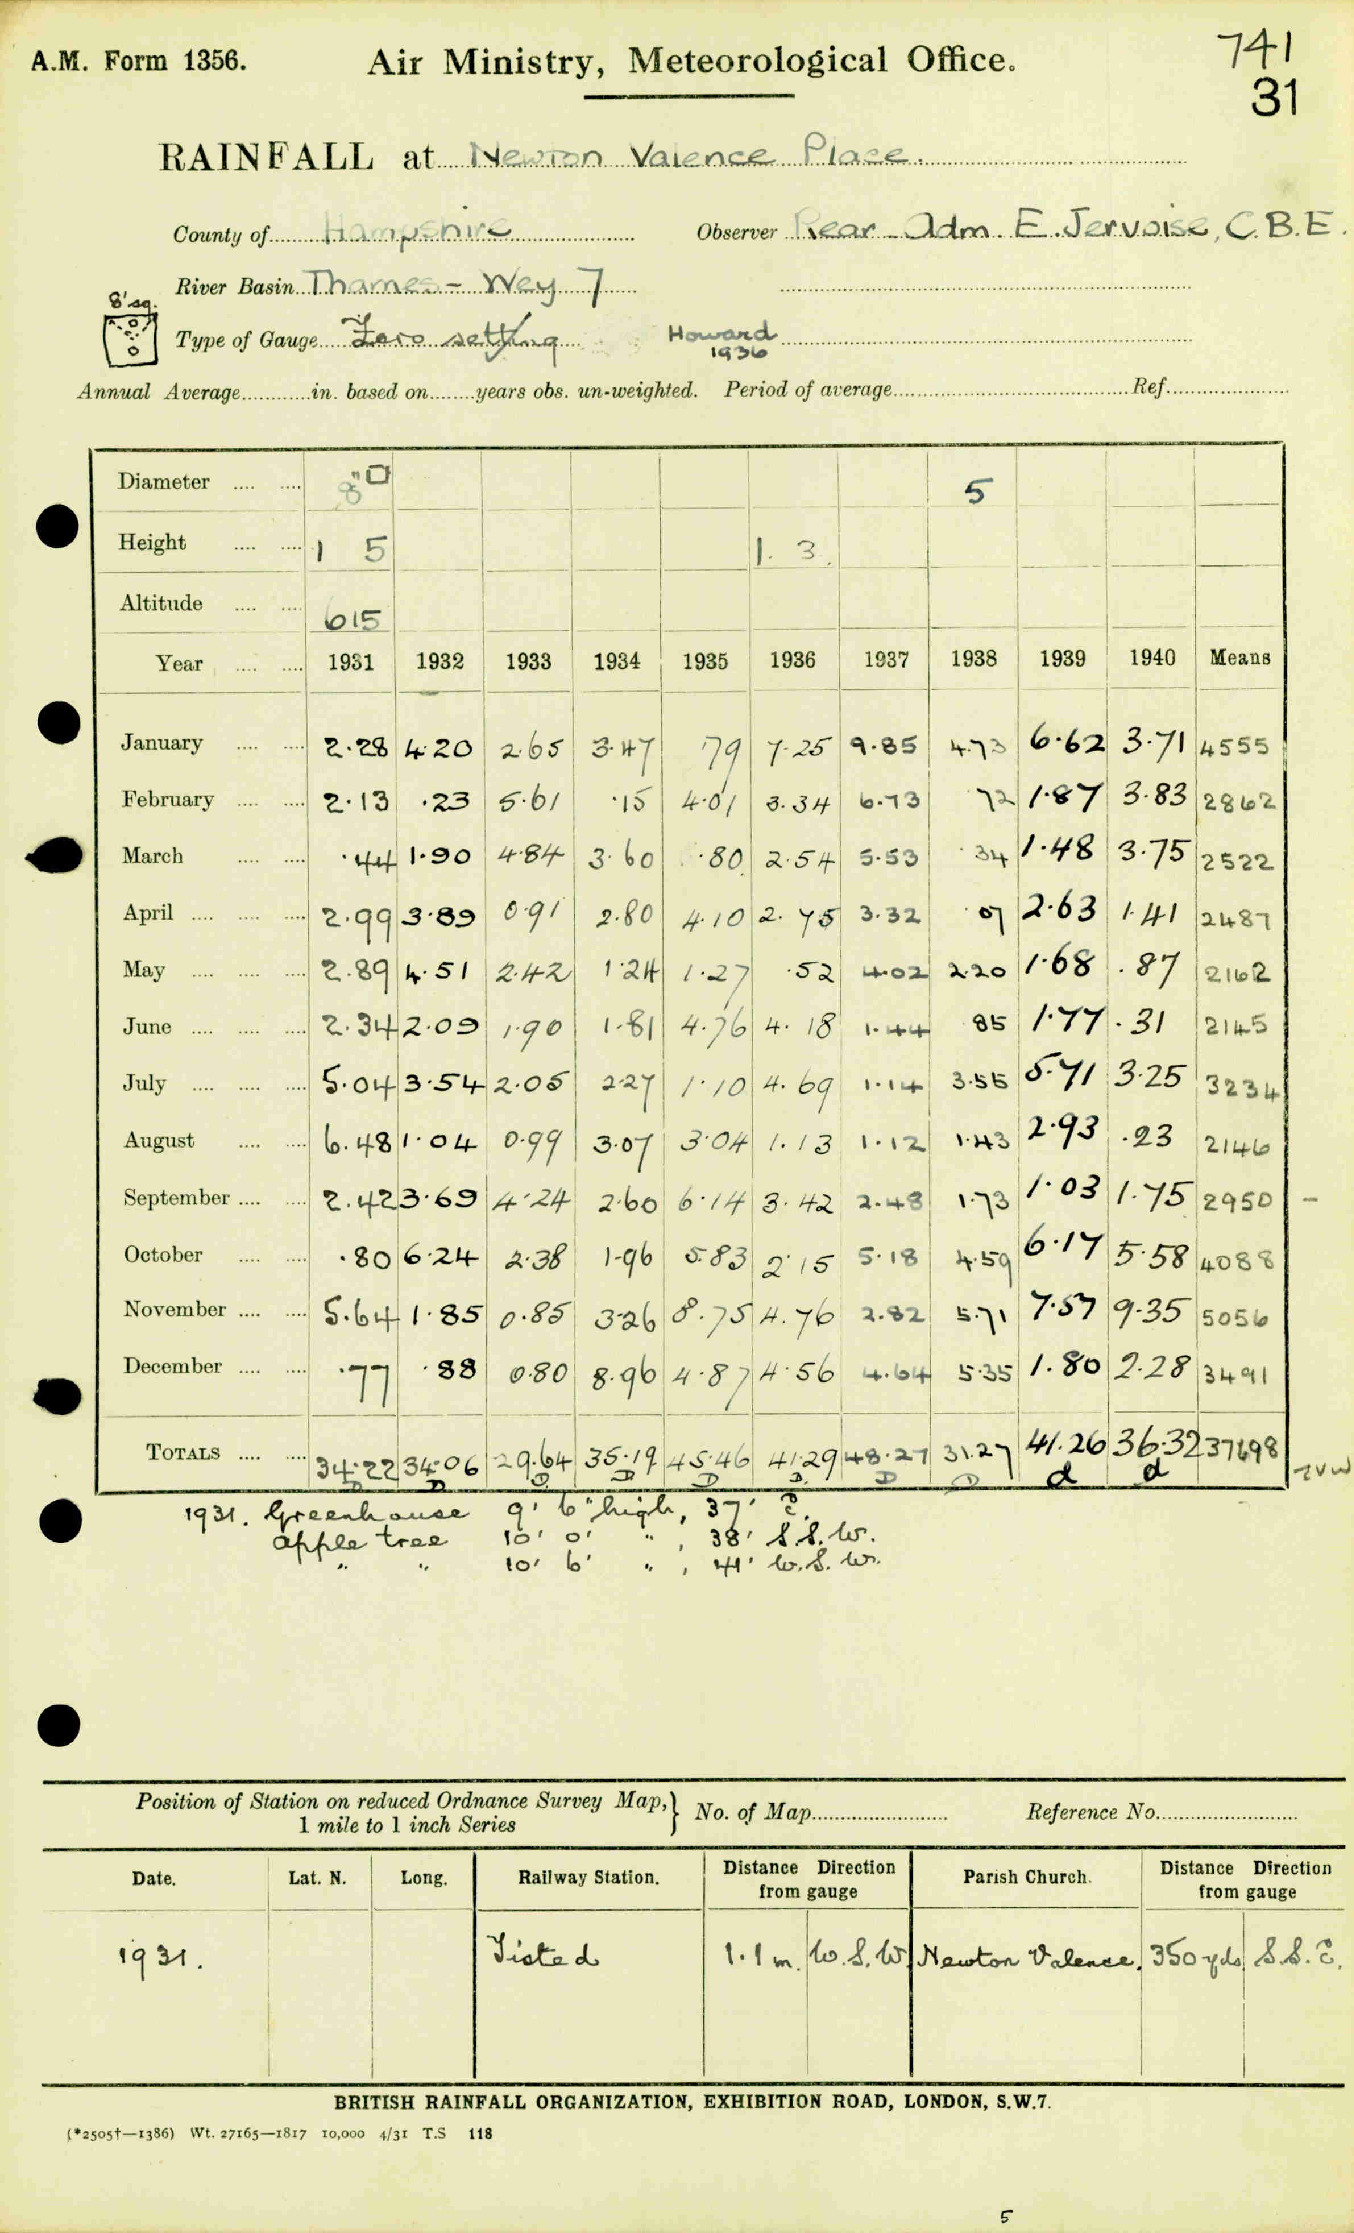 741
A.M. Form 1356. Air Ministry, Meteorological Office.
31
RAINFALL at Newton Valence Place.
County of Hampshire Observer Rear-Adm. E. Jervoise, C.B.E.
River Basin Thames - Wey 7
8" sq.
Type of Gauge Zero setting Howard
1936
Annual Average in. based on years obs. un-weighted. Period of average Ref.
Diameter 8" □ 5
Height 1 5 1. 3.
Altitude 615
Year 1931 1932 1933 1934 1935 1936 1937 1938 1939 1940 Means
January 2.28 4.20 2.65 3.47 79 7.25 9.85 4.73 6.62 3.71 4555
February 2.13 .23 5.61 .15 4.01 3.34 6.73 72 1.87 3.83 2862
March .44 1.90 4.84 3.60 .80 2.54 5.53 .34 1.48 3.75 2522
April 2.99 3.89 0.91 2.80 4.10 2.75 3.32 .07 2.63 1.41 2487
May 2.89 4.51 2.42 1.24 1.27 .52 4.02 2.20 1.68 .87 2162
June 2.34 2.09 1.90 1.81 4.76 4.18 1.44 85 1.77 .31 2145
July 5.04 3.54 2.05 2.27 1.10 4.69 1.14 3.55 5.71 3.25 3234
August 6.48 1.04 0.99 3.07 3.04 1.13 1.12 1.43 2.93 .23 2146
September 2.42 3.69 4.24 2.60 6.14 3.42 2.48 1.73 1.03 1.75 2950 -
October .80 6.24 2.38 1.96 5.83 2.15 5.18 4.59 6.17 5.58 4088
November 5.64 1.85 0.85 3.26 8.75 4.76 2.82 5.71 7.57 9.35 5056
December .77 .88 0.80 8.96 4.87 4.56 4.64 5.35 1.80 2.28 3491
TOTALS 34.22 34.06 29.64 35.19 45.46 41.29 48.27 31.27 41.26 36.32 37698
D D D D D D D D d d
1931. Greenhouse 9' 6" high, 37' E.
apple tree 10' 0' " , 38' S.S.W.
" " 10' 6' " , 41' W.S.W.
Position of Station on reduced Ordnance Survey Map, } No. of Map Reference No.
1 mile to 1 inch Series
Date. Lat. N. Long. Railway Station. Distance Direction from gauge Parish Church. Distance Direction from gauge
1931. Tisted 1.1 m. W.S.W. Newton Valence. 350 yds S.S.E.
BRITISH RAINFALL ORGANIZATION, EXHIBITION ROAD, LONDON, S.W.7.
(*2505†—1386) Wt. 27165—1817 10,000 4/31 T.S 118
5